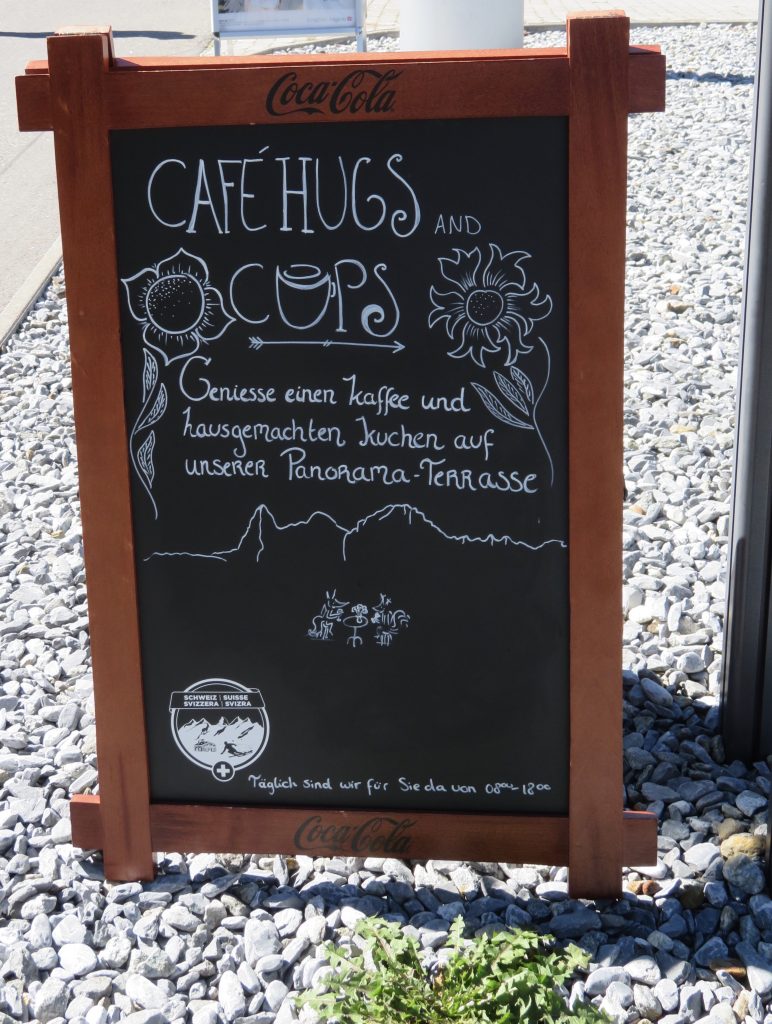 Coca-Cola
CAFÉ HUGS AND
CUPS
Geniesse einen Kaffee und
hausgemachten Kuchen auf
unserer Panorama-Terrasse
SCHWEIZ | SUISSE
SVIZZERA | SVIZRA
Täglich sind wir für Sie da von 08⁰⁰-18⁰⁰
Coca-Cola